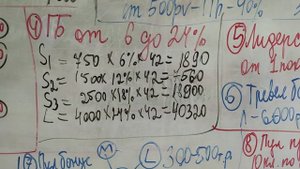 от 500pv - 11р - 40%
④ ГБ от 6 до 24%
S₁ = 750 × 6% × 42 = 1890
S₂ = 1500 × 12% × 42 = 7560
S₃ = 2500 × 18% × 42 = 18900
L = 4000 × 24% × 42 = 40320
⑤ Лидерс
от 1 пок
⑥
Л - 6.000гр
⑦ бонус
М
L 300-500гр.
⑧